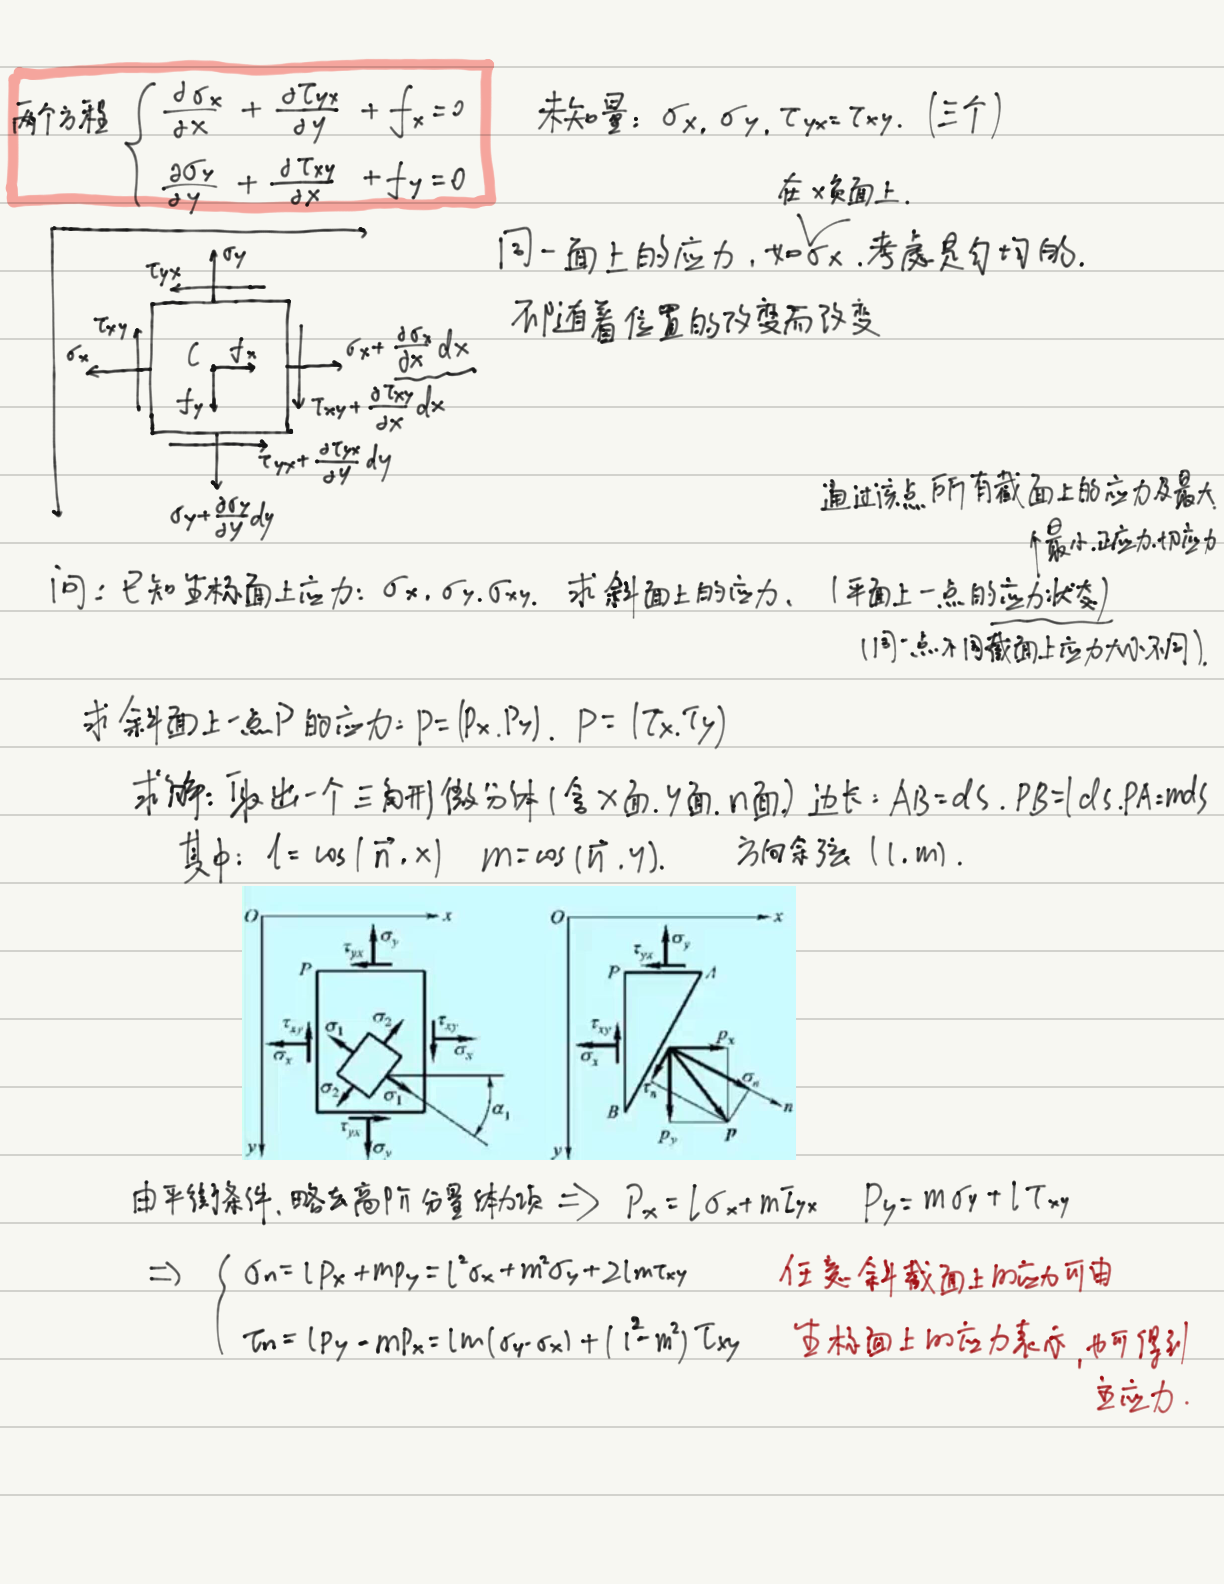 两个方程 { ∂σx/∂x + ∂τyx/∂y + fx = 0
∂σy/∂y + ∂τxy/∂x + fy = 0
未知量: σx, σy, τyx = τxy. (三个)
在x负面上.
同一面上的应力, 如σx, 考虑是匀均的.
不随着位置的改变而改变
σy
τyx
τxy
σx
C fx
fy
σx + ∂σx/∂x dx
τxy + ∂τxy/∂x dx
τyx + ∂τyx/∂y dy
σy + ∂σy/∂y dy
通过该点所有截面上的应力及最大
最小正应力、切应力
问: 已知坐标面上应力: σx, σy, σxy. 求斜面上的应力. (平面上一点的应力状态)
(同一点不同截面上应力大小不同).
求斜面上一点P的应力: p=(Px, Py). p=(τx, τy)
求解: 取出一个三角形微分体(含x面, y面, n面) 边长: AB=ds. PB=lds. PA=mds
其中: l=cos(n⃗, x) m=cos(n⃗, y). 方向余弦 (l, m).
O x
σy
τyx
P
τxy
σx
σ1 σ2
τxy
σx
σ2 σ1
α1
τyx
y σy
O x
σy
τyx
P A
τxy
σx
px
τn σn
B n
py p
y
由平衡条件, 略去高阶分量体力项 => Px = lσx + mτyx Py = mσy + lτxy
=> { σn = lPx + mPy = l²σx + m²σy + 2lmτxy
τn = lPy - mPx = lm(σy-σx) + (l²-m²)τxy
任意斜截面上的应力可由
坐标面上的应力表示, 也可得到
主应力.